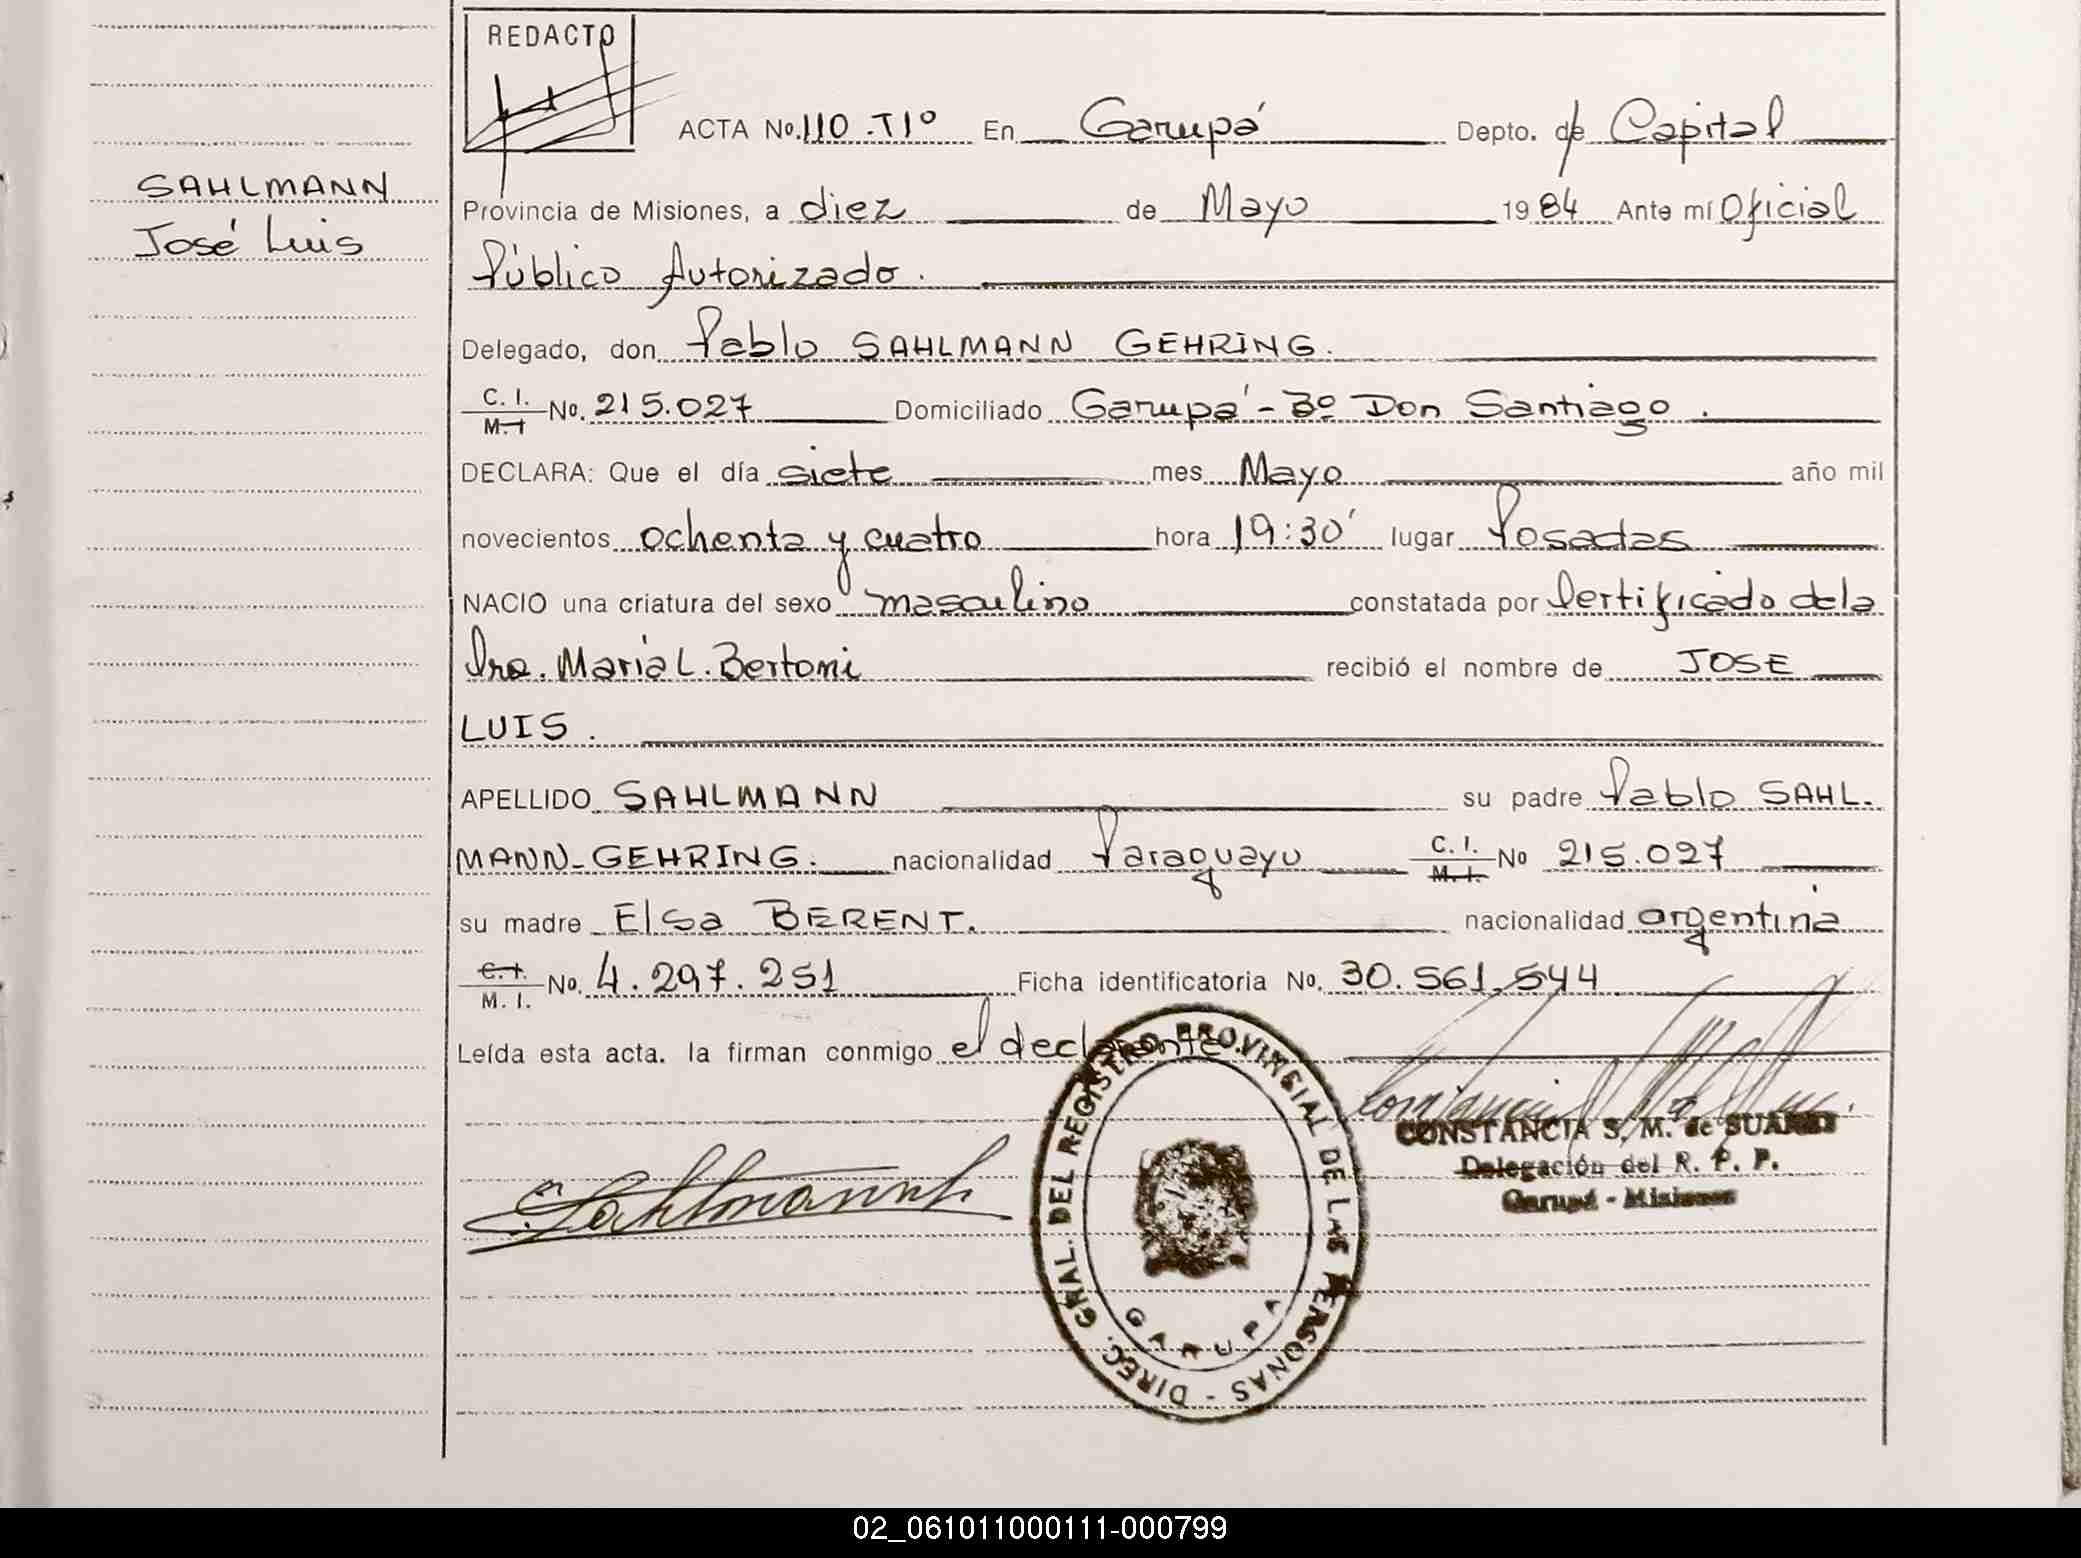 REDACTO
ACTA No. 110 .T1º En Garupá Depto. de Capital
SAHLMANN
José Luis
Provincia de Misiones, a diez de Mayo 1984 Ante mí Oficial
Público Autorizado.
Delegado, don Pablo SAHLMANN GEHRING.
C. I. M. I No. 215.027 Domiciliado Garupá - Bº Don Santiago.
DECLARA: Que el día siete mes Mayo año mil
novecientos ochenta y cuatro hora 19:30' lugar Posadas
NACIO una criatura del sexo masculino constatada por Certificado de la
Dra. María L. Bertoni recibió el nombre de JOSE
LUIS.
APELLIDO SAHLMANN su padre Pablo SAHL.
MANN-GEHRING. nacionalidad Paraguayo C. I. M. I. No 215.027
su madre Elsa BERENT. nacionalidad argentina
C. I. M. I. No. 4.297.251 Ficha identificatoria No. 30.561.544
Leída esta acta. la firman conmigo el declarante.
DIREC. GRAL. DEL REGISTRO PROVINCIAL DE LAS PERSONAS -
GARUPA
CONSTANCIA S. M. de SUAREZ
Delegación del R. P. P.
Garupá - Misiones
Sahlmann
02_061011000111-000799